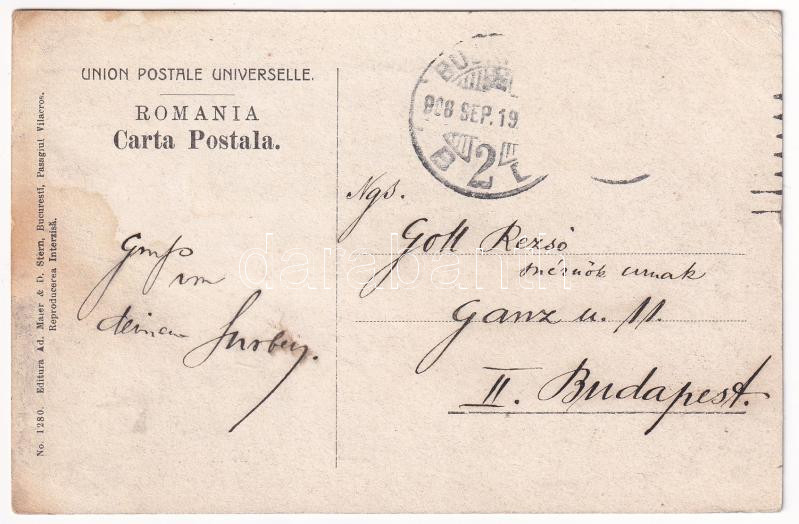 UNION POSTALE UNIVERSELLE.
ROMANIA
Carta Postala.
No. 1280. Editura Ad. Maier & D. Stern, Bucuresti, Pasagiul Vilacros.
Reproducerea Interzisă.
908 SEP. 19
2
Ngs.
Gott Rezső
mérnök urnak
Ganz u. 11.
II. Budapest.
Gruß von
deinem
darabanth